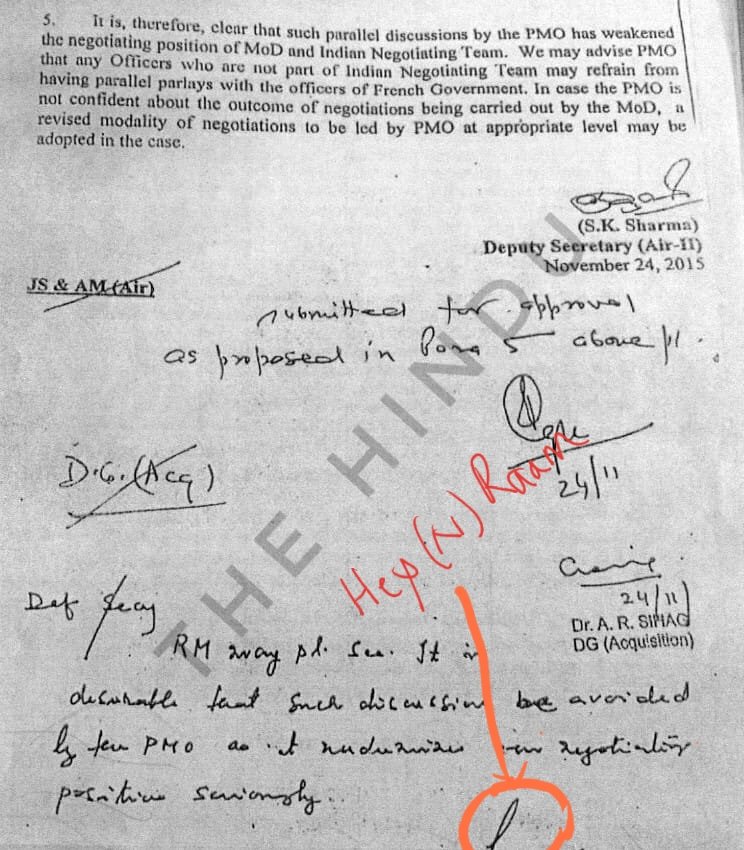 5. It is, therefore, clear that such parallel discussions by the PMO has weakened
the negotiating position of MoD and Indian Negotiating Team. We may advise PMO
that any Officers who are not part of Indian Negotiating Team may refrain from
having parallel parlays with the officers of French Government. In case the PMO is
not confident about the outcome of negotiations being carried out by the MoD, a
revised modality of negotiations to be led by PMO at appropriate level may be
adopted in the case.
(S.K. Sharma)
Deputy Secretary (Air-II)
November 24, 2015
JS & AM (Air)
submitted for approval
as proposed in Para 5 above pl.
24/11
D.G. (Acq)
THE HINDU
Hey (N) Raam
24/11
Dr. A. R. SIHAG
DG (Acquisition)
Def Secy
RM may pl. see. It is
desirable that such discussions be avoided
by the PMO as it undermines our negotiating
position seriously.